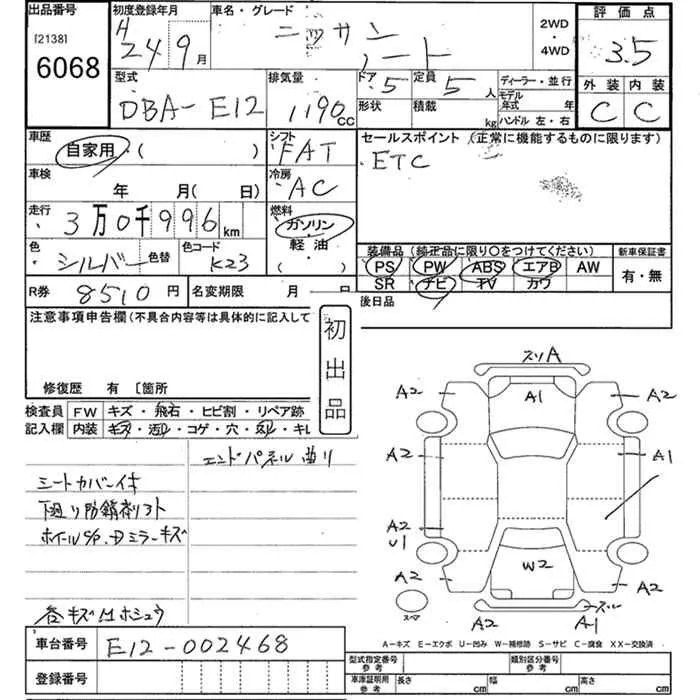 出品番号 初度登録年月 車名・グレード 2WD・4WD 評価点
[2138] 6068 H 24 9月 ニッサン ノート 3.5
型式 排気量 ドア 5 定員 5人 ディーラー・並行 外装 内装
DBA-E12 1190cc 形状 積載 kg モデル年式 年 C C
ハンドル 左・右
車歴 自家用・( ) シフト FAT セールスポイント (正常に機能するものに限ります)
車検 年 月( 日) 冷房 AC ETC
走行 3万0千996km 燃料 ガソリン・軽油・( )
色 シルバー 色替 色コード K23 装備品 (純正品に限り○をつけてください) 新車保証書
PS PW ABS エアB AW 有・無
SR ナビ TV カワ
R券 8510円 名変期限 月 日 後日品
注意事項申告欄(不具合内容等は具体的に記入して
初出品
修復歴 有 [箇所
検査員 FW キズ・飛石・ヒビ割・リペア跡
記入欄 内装 キズ・汚れ・コゲ・穴・スレ・キレ
エンドパネル曲り
シートカバー付
下廻り防錆剤リフト
ホイールC/P、ドミラーキズ
各キズ ホシュウ
スリA
A2 A1 A2
A2 A1
A2
U1
A2 W2 A2
スペア
A2 A1 スレ
A-キズ E-エクボ U-凹み W-補修跡 S-サビ C-腐食 XX-交換済
車台番号 E12-002468
登録番号
型式指定番号 参考 類別区分番号 参考
車庫証明用 参考 長さ cm 幅 cm 高さ cm